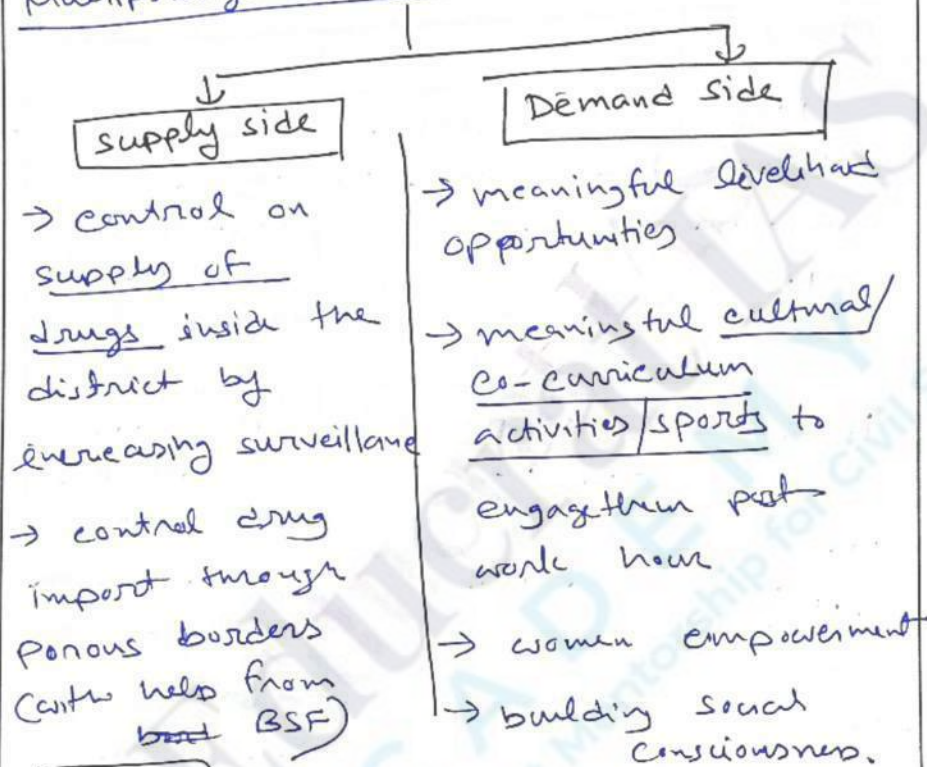 supply side
→ control on
supply of
drugs inside the
district by
increasing surveillane
→ control drug
import through
porous borders
(with help from
BSF)
Demand side
→ meaningful livelihood
opportunities.
→ meaningful cultural/
co-curriculum
activities/sports to
engage them post
work hour
→ women empowerment
→ building social
consciousness.
Educrat IAS
ACADEMY
Mentorship for Civil